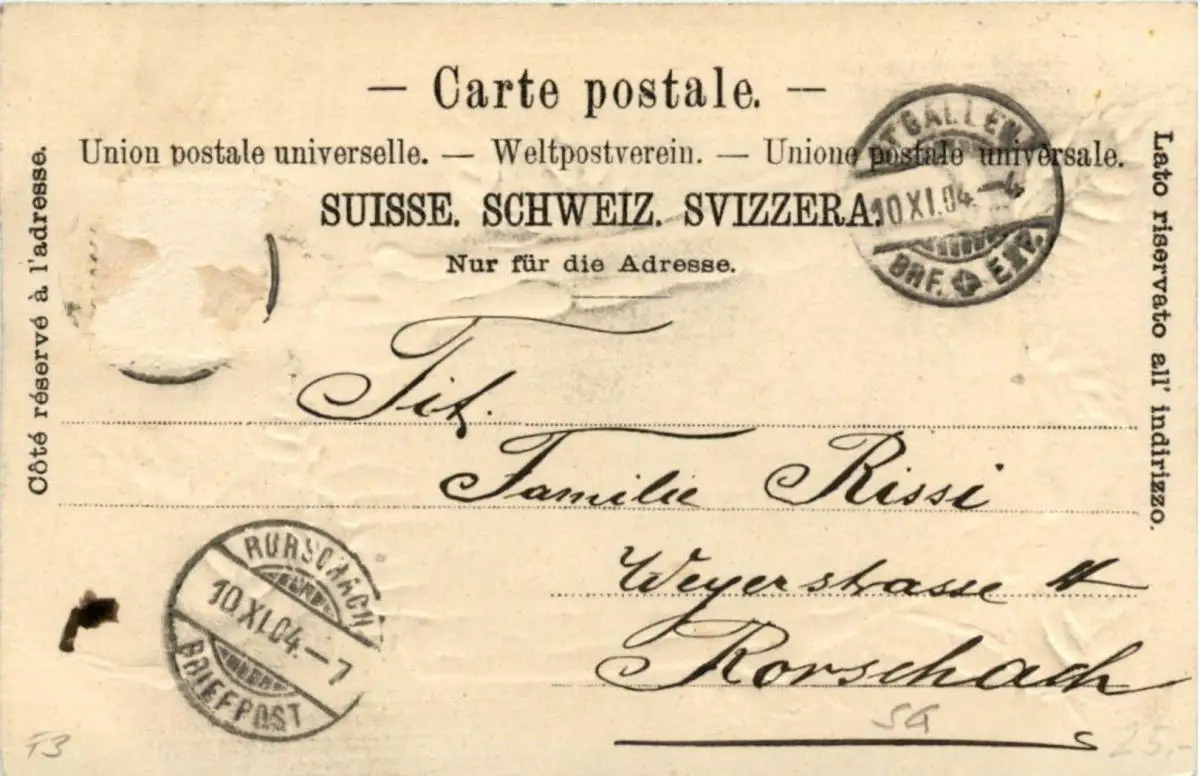 — Carte postale. —
Union postale universelle. — Weltpostverein. — Unione postale universale.
SUISSE. SCHWEIZ. SVIZZERA.
Nur für die Adresse.
Côté réservé à l'adresse.
Lato riservato all' indirizzo.
ST GALLEN
10 XI.04.–4
BRF. EXP.
Tit.
Familie Rissi
Weyerstrasse
Rorschach
RORSCHACH
10 XI.04.–7
BRIEFPOST
SG
25.-